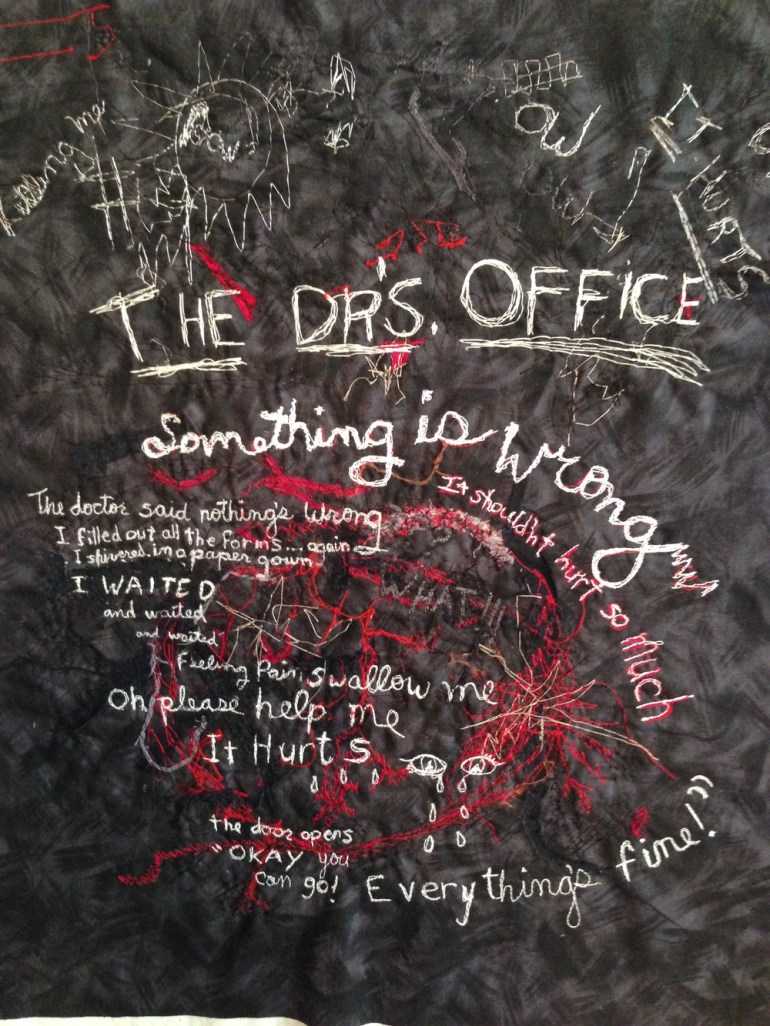 killing me
OW
OW
IT HURTS
THE DR'S. OFFICE
Something is wrong
It should'nt hurt so much
The doctor said nothing's wrong
I filled out all the forms... again
I shivered in a paper gown
I WAITED
and waited
and waited
WHAT!!!
Feeling Pain swallow me
Oh please help me
It Hurts
the door opens
"OKAY you
can go! Everything's fine!"